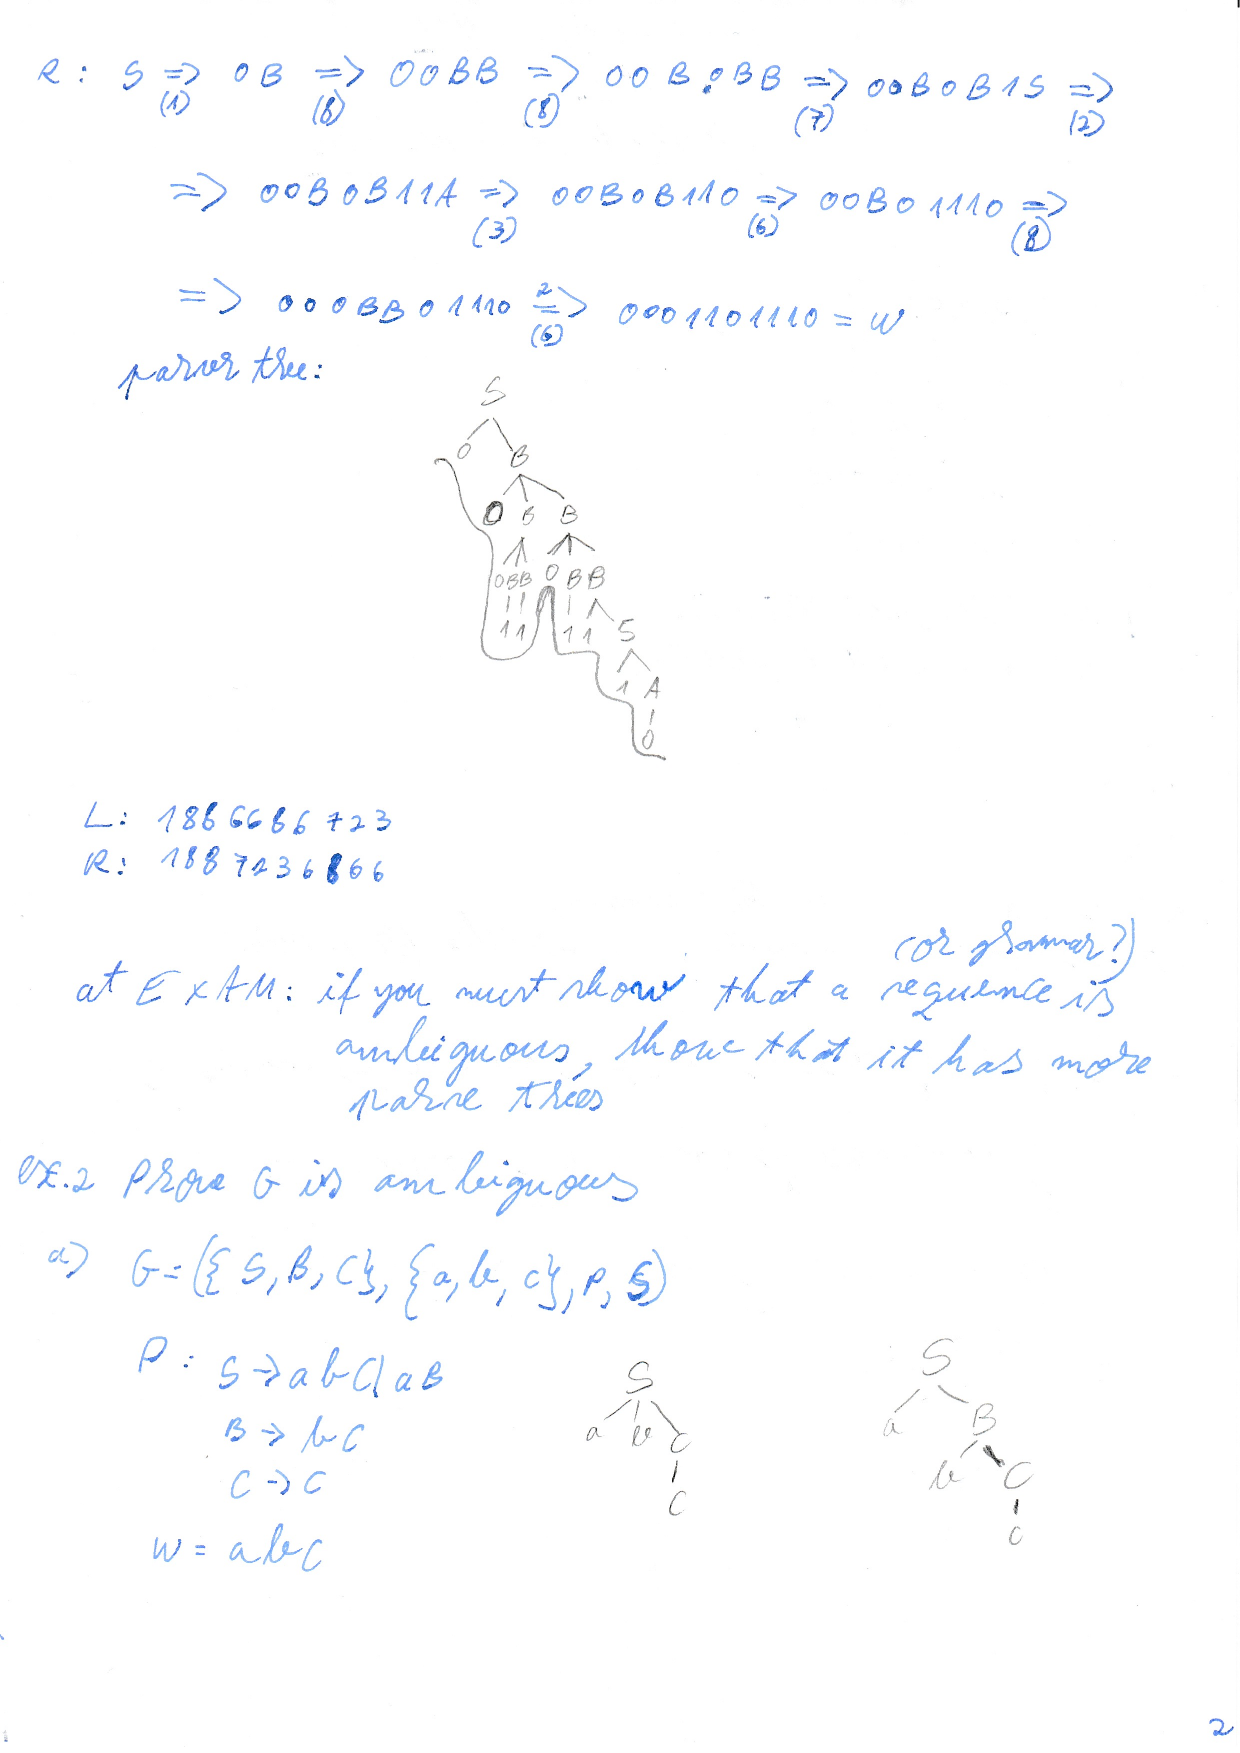 R: S => 0B => 00BB => 00B0BB => 00B0B1S =>
(1) (8) (8) (7) (2)
=> 00B0B11A => 00B0B110 => 00B01110 =>
(3) (6) (8)
=> 000BB01110 2=> 0001101110 = w
(6)
parser tree:
S
0 B
0 B B
0BB 0 B B
1 1 1 1 S
1 A
0
L: 1886686723
R: 1887236866
(or grammar?)
at EXAM: if you must show that a sequence is
ambiguous, show that it has more
parse trees
ex.2 Prove G is ambiguous
a) G = ({S, B, C}, {a, b, c}, P, S)
P: S -> abC | aB
B -> bC
C -> c
w = abc
S
a b C
c
S
a B
b C
c
2